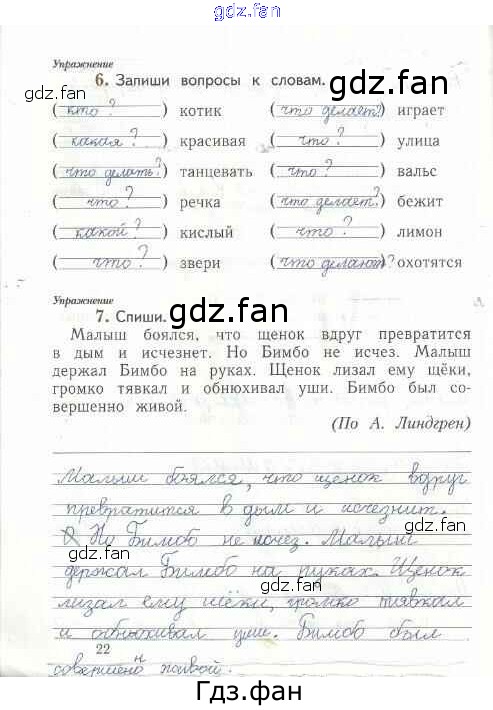 gdz.fan
Упражнение
6. Запиши вопросы к словам.
gdz.fan
gdz.fan
( кто? ) котик ( что делает? ) играет
( какая? ) красивая ( что? ) улица
( что делать? ) танцевать ( что? ) вальс
( что? ) речка ( что делает? ) бежит
( какой? ) кислый ( что? ) лимон
( что? ) звери ( что делают? ) охотятся
Упражнение
7. Спиши.
gdz.fan
Малыш боялся, что щенок вдруг превратится
в дым и исчезнет. Но Бимбо не исчез. Малыш
держал Бимбо на руках. Щенок лизал ему щёки,
громко тявкал и обнюхивал уши. Бимбо был со-
вершенно живой.
(По А. Линдгрен)
Малыш боялся, что щенок вдруг
превратится в дым и исчезнит.
Но Бимоб не исчез. Малыш
gdz.fan
держал Бимоб на руках. Щенок
gdz.fan
лизал ему щёки, громко тявкал
и обнюхивал уши. Бимоб был
22
совершено н живой.
gdz.fan
Гдз.фан